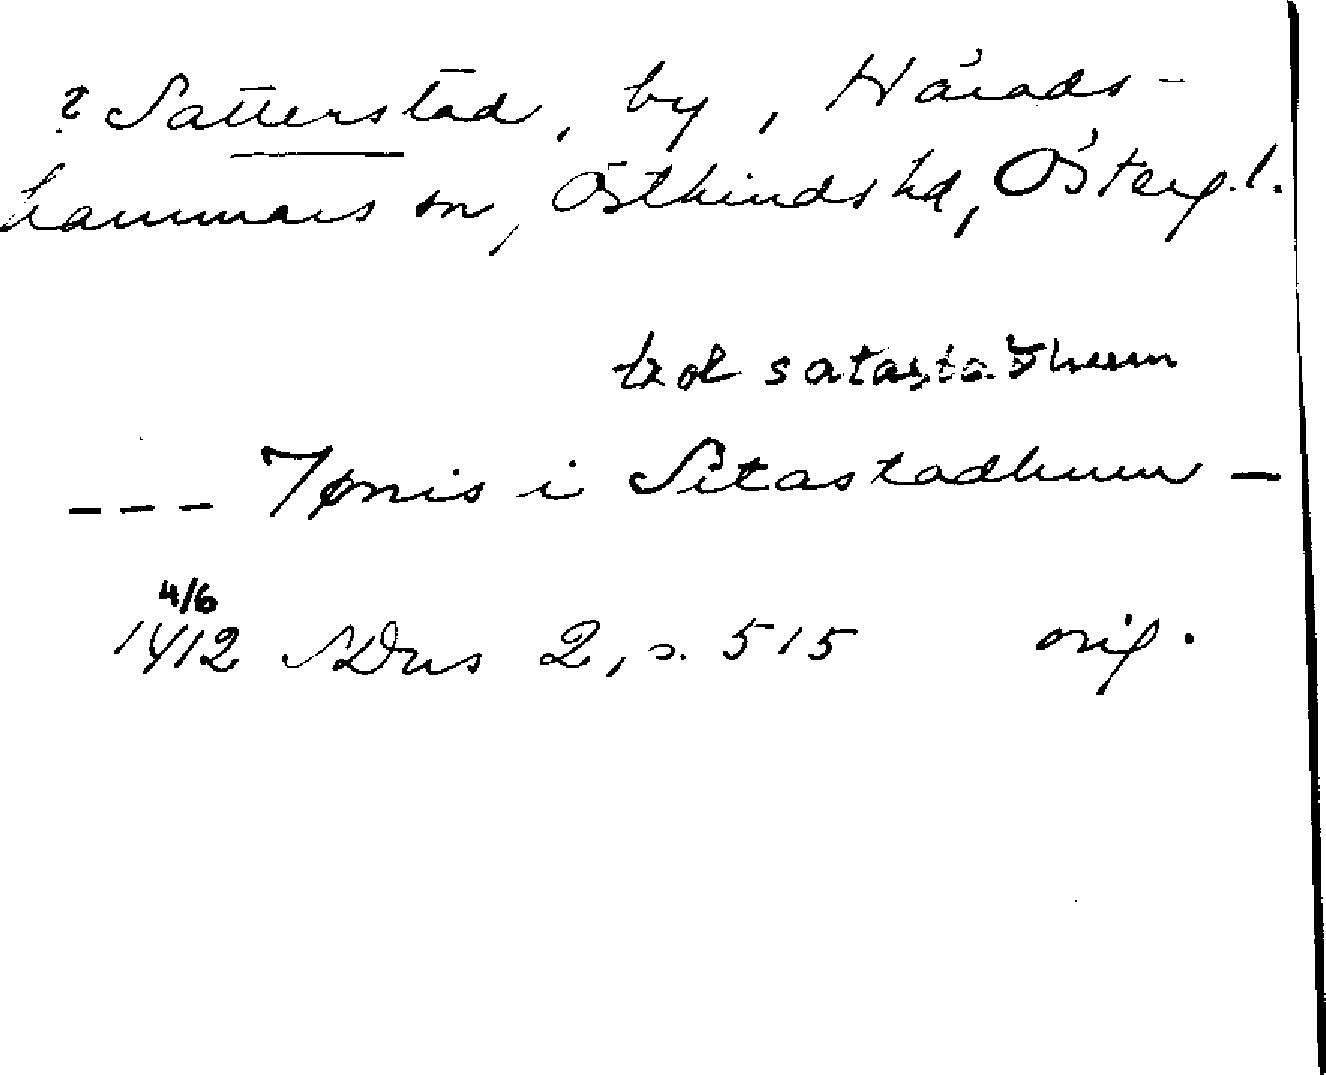 ? Satterstad, by, Härads-
hammars sn, Östkinds hd, Östergl.
satastadhum
--- Jønis i Sitastadhum -
4/6
1412 SDns 2, s. 515 orig.